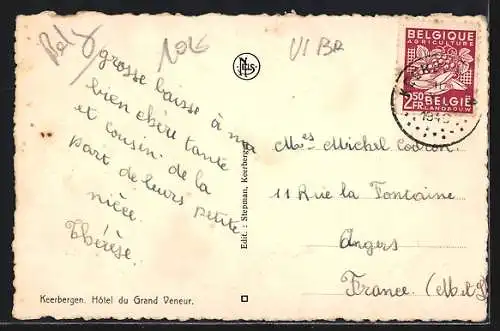 Bel
1026
VI BR
grosse baisse à ma
bien chère tante
et cousin de la
part de leurs petite
nièce.
Thérèse.
Keerbergen. Hôtel du Grand Veneur.
Edit. : Stepman, Keerbergen
NELS
BELGIQUE
AGRICULTURE
2.50
FR
BELGIË
LANDBOUW
Mes Michel
11 Rue la Fontaine
Angers
France. (M et L)